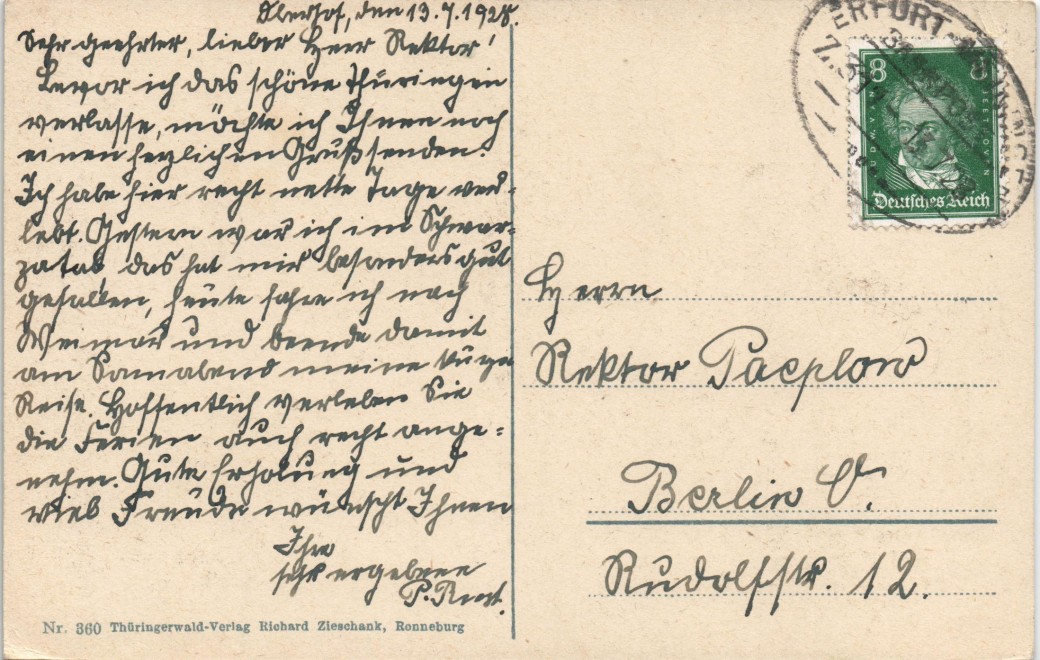 Oberhof, den 13.7.1928.
Sehr geehrter, lieber Herr Rektor!
Bevor ich das schöne Thüringen
verlasse, möchte ich Ihnen noch
einen herzlichen Gruß senden.
Ich habe hier recht nette Tage ver-
lebt. Gestern war ich im Schwar-
zatal, das hat mir besonders gut
gefallen, heute fahre ich nach
Weimar und beende damit
am Sonnabend meine
Reise. Hoffentlich verleben Sie
die Ferien auch recht ange-
nehm. Gute Erholung und
viel Freude wünscht Ihnen
Ihre
sehr ergebene
P.
Nr. 360 Thüringerwald-Verlag Richard Zieschank, Ronneburg
ERFURT-
BAHNPOST
8 8
Deutsches Reich
Herrn
Rektor Paeplow
Berlin O.
Rudolfstr. 12.